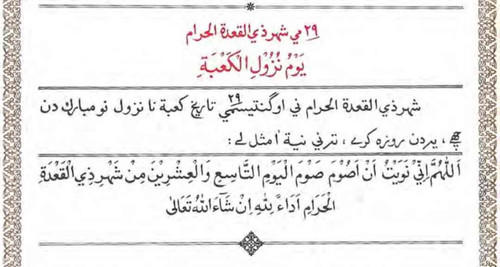 ٢٩ مي شهر ذي القعدة الحرام
يَوْمُ نُزُوْلِ الْكَعْبَةِ
شهر ذي القعدة الحرام ني اوگنتيسمي ٢٩ تاريخ كعبة نا نزول نو مبارك دن
ڇھے، يہ دن روزہ كرے، تہ ني نية ا مثل لے:
اَللّٰهُمَّ اِنِّيْ نَوَيْتُ اَنْ اَصُوْمَ صَوْمَ الْيَوْمِ التَّاسِعِ وَالْعِشْرِيْنَ مِنْ شَهْرِ ذِي الْقَعْدَةِ
الْحَرَامِ اَدَاءً لِلّٰهِ اِنْ شَاءَ اللهُ تَعَالٰى